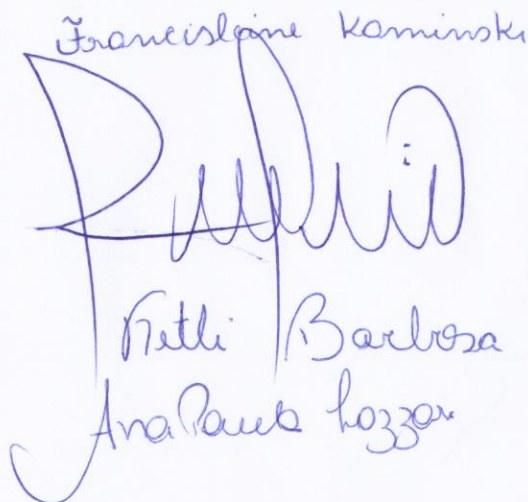 Francislaine Kaminski
Ketli Barbosa
Ana Paula Lozzar